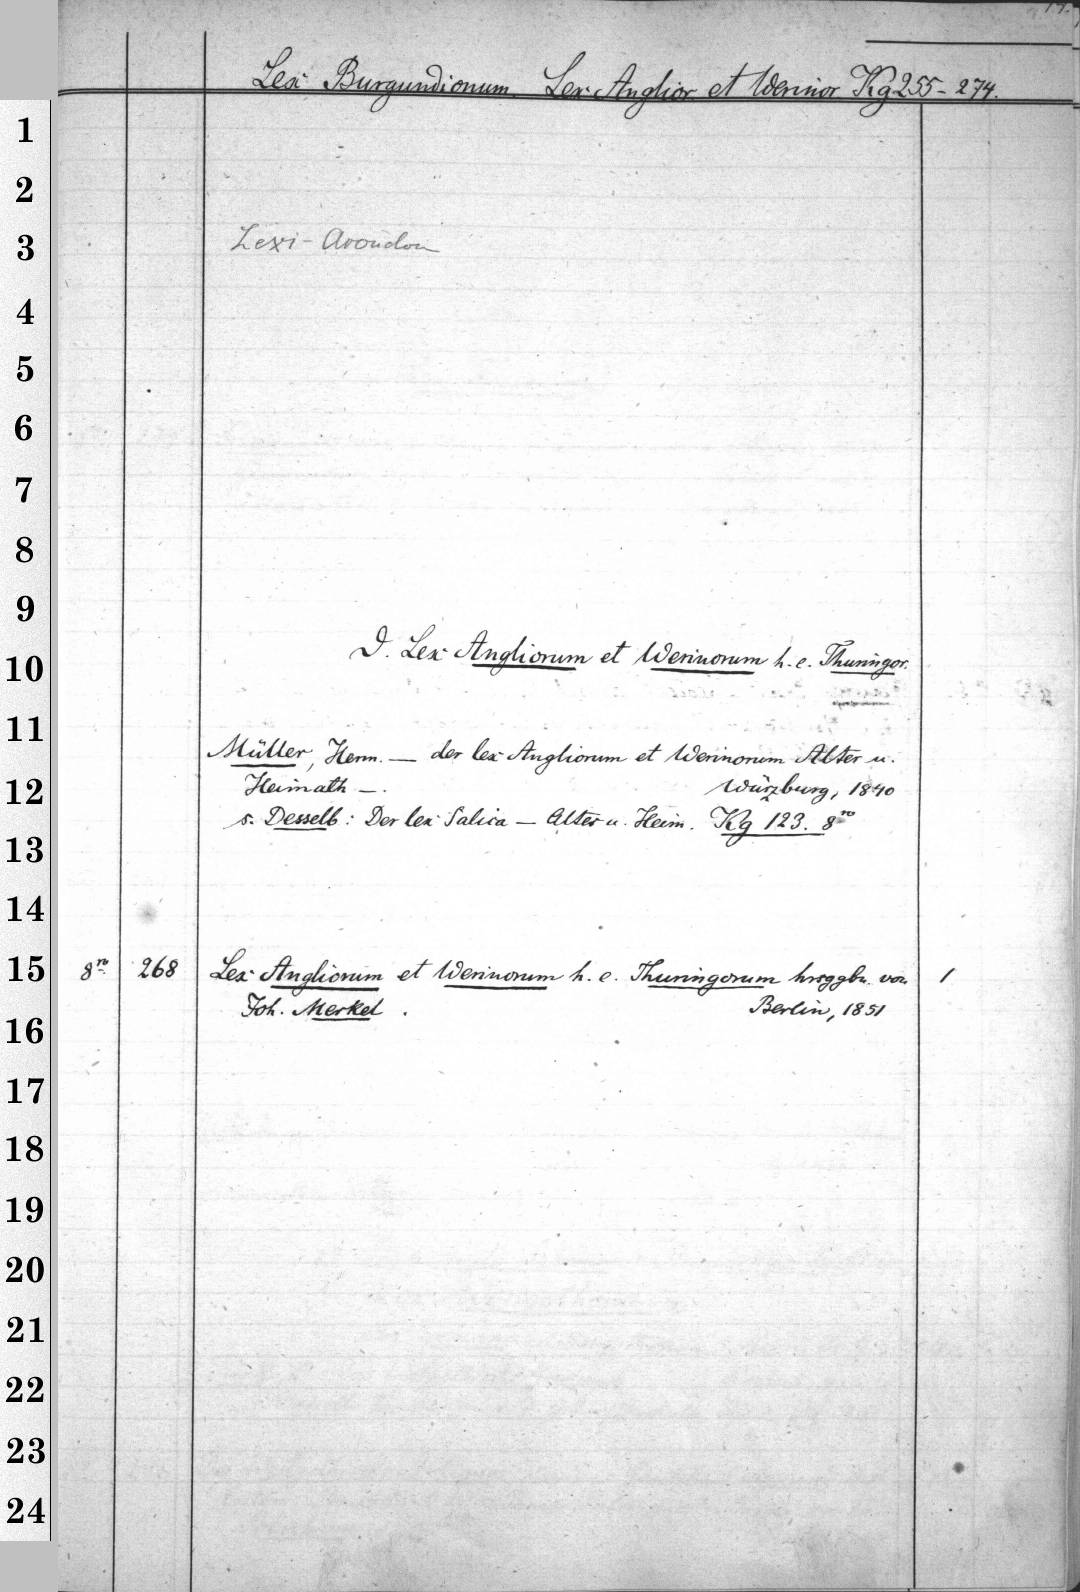 Lex Burgundionum. Lex Anglior et Werinor Kg 255-274.
1
2
3
4
5
6
7
8
9
D. Lex Angliorum et Werinorum h. e. Thuringor.
10
11
Müller, Herm. — der lex Angliorum et Werinorum Alter u.
12
Heimath —. Würzburg, 1840
s. Desselb: Der lex Salica — Alter u. Heim. Kg 123. 8ro
13
14
15
8ro 268 Lex Angliorum et Werinorum h. e. Thuringorum hrsggbn. von 1
Joh. Merkel. Berlin, 1851
16
17
18
19
20
21
22
23
24